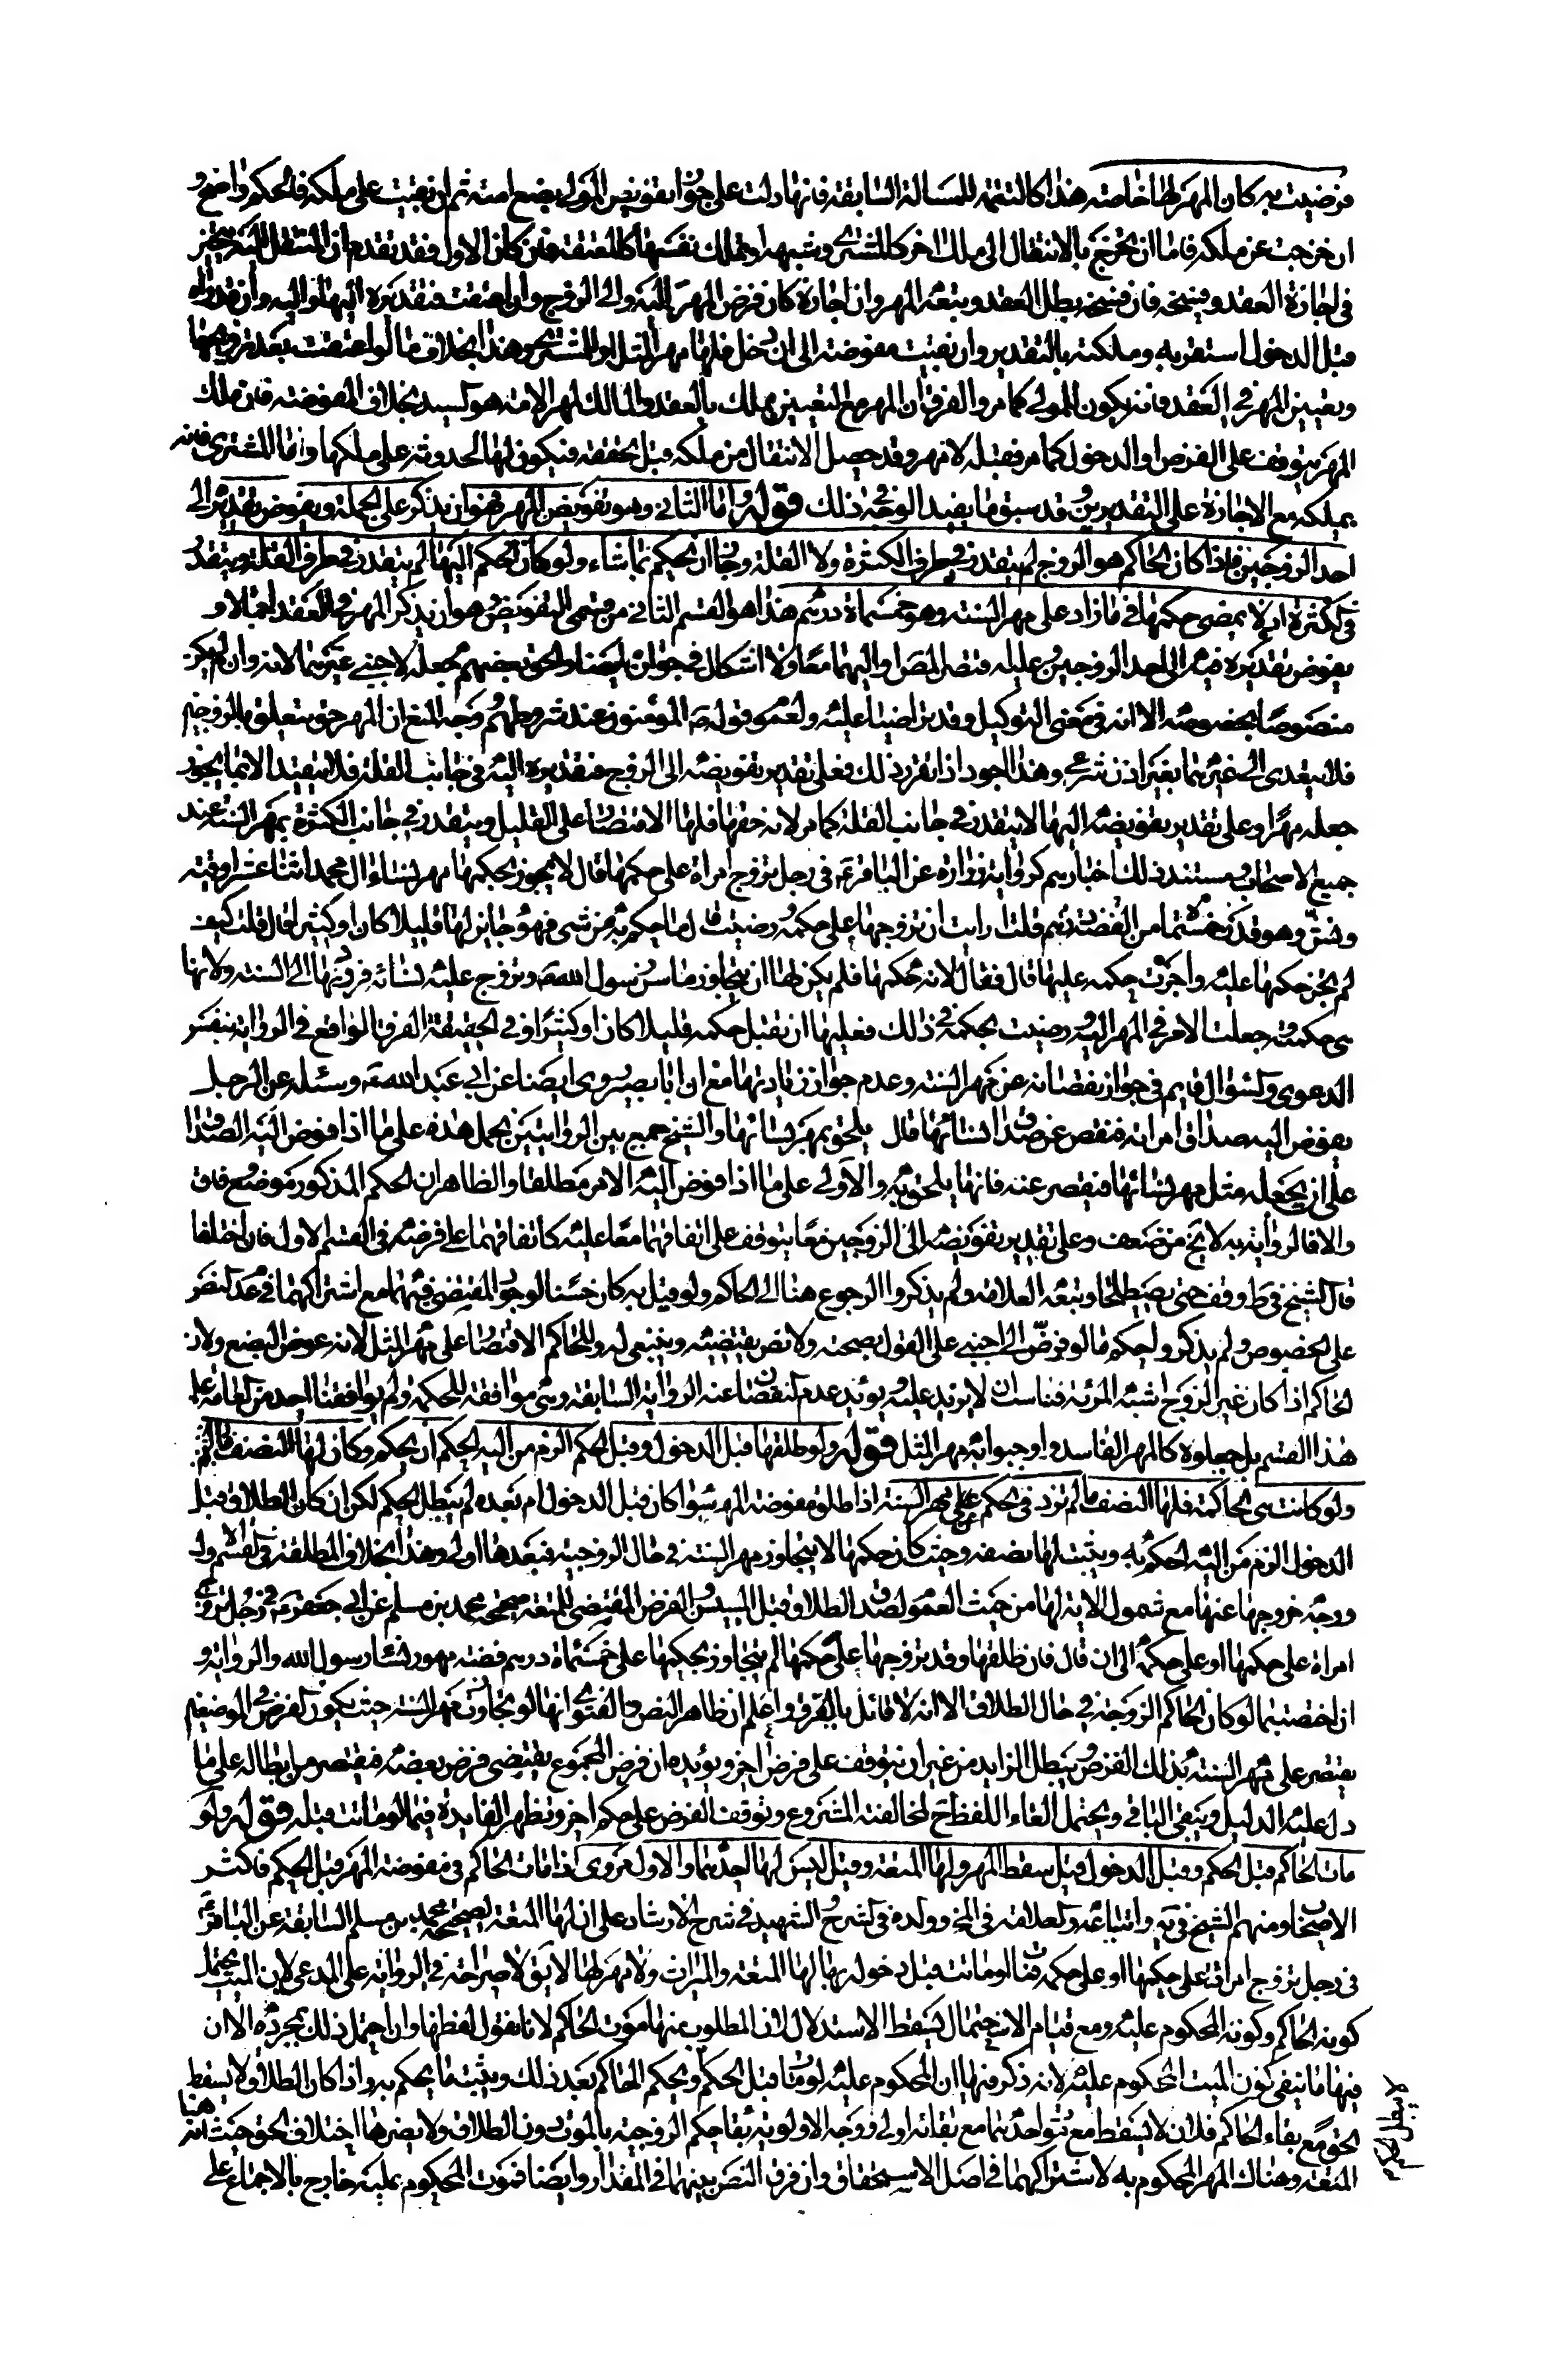 فرضيت به كان المهر لها خاصة هذا كالتتمة للمسالة السابقة فانها دلت على جواز تفويض المولى بضع امته ثم ان بقيت على ملكه فالحكم واضح و
ان خرجت عن ملكه فاما ان تخرج بالانتقال الى ملك اخر كالمشترى وشبهه او تملك نفسها كالمعتقة فان كان الاول فقد تقدم ان المنتقل اليه يتخير
فى اجازة العقد وفسخه فان فسخه بطل العقد وتبعه المهر وان اجازه كان فرض المهر اليه والى الزوج وان اعتقت فتقديره اليها واليه وان قدراه
قبل الدخول استقر به وملكته بالتقدير وان بقيت مفوضته الى ان دخل فلها مهر المثل او للمشترى وهذا بخلاف ما لو اعتقت بعد تزويجها
وتعيين المهر فى العقد فانه يكون للمولى كما مر والفرق ان المهر مع التعيين يملك بالعقد والمالك لمهر الامة هو السيد بخلاف المفوضة فان ملك
المهر يتوقف على الفرض او الدخول كما مر فقبله لا مهر وقد حصل الانتقال من ملكه قبل تحققه فيكون لها لحدوثه على ملكها واما المشترى فانه
يملكه مع الاجازة على التقديرين وقد سبق ما يفيد الوجه فى ذلك قوله واما الثانى وهو تفويض المهر فهو ان يذكر على الجملة ويفوض تقديره الى
احد الزوجين فاذا كان الحاكم هو الزوج لم يتقدر فى طرف الكثرة ولا القلة وجاز ان يحكم بما شاء ولو كان الحكم اليها لم يتقدر فى طرف القلة ويتقدر
فى الكثرة اذ لا يمضى حكمها فى ما زاد على مهر السنة وهو خمسماة درهم هذا هو القسم الثانى من قسمى التفويض وهو ان يذكر المهر فى العقد اجمالا و
يفوض تقديره فيه الى احد الزوجين وعليه اقتصر المصر او اليهما معا ولا اشكال فى جوازه ايضا والحق بعضهم جعله لاجنبى غيرهما لانه وان لم يكن
منصوصا بخصوصه الا انه فى معنى التوكيل وقد تراضيا عليه ولعموم قوله المؤمنون عند شروطهم ووجه المنع ان المهر حق يتعلق بالزوجين
فلا يتعدى الى غيرهما بغير اذن شرعى وهذا اجود اذا تقرر ذلك فعلى تقدير تفويضه الى الزوج فتقديره اليه فى جانب القلة فلا يتقيد الا بما يجوز
جعله مهرا وعلى تقدير تفويضه اليها لا يتقدر فى جانب القلة كما مر لانه حقها فلها الاقتصار على القليل ويتقدر فى جانب الكثرة بمهر السنة عند
جميع الاصحاب ومستند ذلك اخبارهم كرواية زرارة عن الباقر فى رجل تزوج امراة على حكمها قال لا يجوز بحكمها مهر نساء ال محمد اثنتا عشر اوقية
ونش وهو قدر خمسماة من الفضة درهم قلت ارايت ان تزوجها على حكمه ورضيت قال ما حكم به من شى فهو جايز لها قليلا كان او كثيرا قال قلت كيف
لم تجز حكمها عليه واجزت حكمه عليها قال فقال لانه حكمها فلم يكن لها ان تتجاوز ما سن رسول الله وتزوج عليه نسائه فرددتها الى السنة ولانها
هى حكمته وجعلت الامر فى المهر اليه ورضيت بحكمه فى ذلك فعليها ان تقبل حكمه قليلا كان او كثيرا وفى الحقيقة الفرق الواقع فى الرواية بنفس
الدعوى والسؤال قايم فى جواز نقصانه عن مهر السنة وعدم جواز زيادتها مع ان ابا بصير روى ايضا عن ابى عبد الله وسئله عن الرجل
يفوض اليه صداق امراته فنقص عن صداق نسائها قال يلحق بمهر نسائها والشيخ جمع بين الروايتين بحمل هذه على ما اذا فوض اليه الصداق
على ان يجعله مثل مهر نسائها فيقصر عنه فانها يلحق به والاولى على ما اذا فوض اليه الامر مطلقا والظاهر ان الحكم المذكور موضع وفاق
والا فالرواية به لا تخ من ضعف وعلى تقدير تفويضه الى الزوجين معا يتوقف على اتفاقهما معا عليه كاتفاقهما على فرضه فى القسم الاول فان اختلفا
قال الشيخ فى ط وقف حتى يصطلحا وتبعه العلامة ولم يذكروا الرجوع هنا الى الحاكم ولو قيل به كان حسنا لوجود المقتضى فيهما مع اشتراكهما فى عدم النص
على الخصوص ولم يذكروا حكم ما لو فوض الى اجنبى على القول بصحته ولا نص يقتضيه وينبغى له وللحاكم الاقتصار على مهر المثل لانه عوض البضع ولان
الحاكم اذا كان غير الزوج اشبه المرئة فناسب ان لا يزيد عليه ويؤيد عدم النقصان عنه الرواية السابقة وهى موافقة للحكمة ولم يوافقنا احد من العامة على
هذا القسم بل جعلوه كالمهر الفاسد واوجبوا به مهر المثل قوله ولو طلقها قبل الدخول وقبل الحكم الزم من اليه الحكم ان يحكم وكان لها النصف
ولو كانت هى الحاكمة فلها النصف ما لم تزد فى الحكم على مهر السنة اذا طلق مفوضة المهر سوا كان قبل الدخول ام بعده لم يبطل الحكم لكن ان كان الطلاق قبل
الدخول الزم من اليه الحكم به ويثبت لها نصفه وحيث كان حكمها لا يتجاوز مهر السنة فى حال الزوجية فبعدها اولى وهذا بخلاف المطلقة فى القسم الاول
ووجه خروجها عنها مع شمول الاية لها من حيث العموم لصدق الطلاق قبل المسيس والفرض المقتضى للمتعة صحيحة محمد بن مسلم عن ابى جعفر فى رجل تزوج
امراة على حكمها او على حكمه الى ان قال فان طلقها وقد تزوجها على حكمها لم تتجاوز بحكمها على خمسماة درهم فضة مهور نساء رسول الله والرواية و
ان اختصت بما لو كان الحاكم الزوجة فى حال الطلاق الا انه لا قائل بالفرق واعلم ان ظاهر النص والفتوى انها لو تجاوزت مهر السنة حيث يكون الفرض فى الموضعين
يقتصر على مهر السنة بذلك الفرض ويبطل الزايد من غير ان يتوقف على فرض اخر ويؤيده ان فرض المجموع يقتضى فرض بعضه فيقتصر من ابطاله على ما
دل عليه الدليل ويبقى الباقى ويحتمل الغاء اللفظ ح لمخالفته المشروع وتوقف الفرض على حكم اخر وتظهر الفايدة فيما لو ماتت قبله قوله ولو
مات الحاكم قبل الحكم وقبل الدخول قيل سقط المهر ولها المتعة وقيل ليس لها احدهما والاول مروى اذا مات الحاكم فى مفوضة المهر قبل الحكم فاكثر
الاصحاب ومنهم الشيخ فى يه واتباعه والعلامة فى المخ وولده فى الشرح والشهيد فى شرح الارشاد على ان لها المتعة لصحيحة محمد بن مسلم السابقة عن الباقر
فى رجل تزوج امراة على حكمها او على حكمه فمات او ماتت قبل دخوله بها لها المتعة والميراث ولا مهر لها لا يق لا صراحة فى الرواية على المدعى لان الميت يحتمل
كونه الحاكم وكونه المحكوم عليه ومع قيام الاحتمال يسقط الاستدلال اذ المطلوب منها موت الحاكم لانا نقول لفظها وان احتمل ذلك بمجرده الا ان
فيها ما ينفى كون الميت المحكوم عليه لانه ذكر فيها ان المحكوم عليه لو مات قبل الحكم ويحكم الحاكم بعد ذلك ويثبت ما يحكم به واذا كان الطلاق لا يسقط
الحق مع بقاء الحاكم فلان لا يسقط مع موت احدهما مع بقائه اولى ووجه الاولوية بقا حكم الزوجية بالموت دون الطلاق ولا يضرها اختلاف الحق حيث انه هنا
المتعة وهناك المهر المحكوم به لاشتراكهما فى اصل الاستحقاق وان فرق النص بينهما فى المقدار وايضا فموت المحكوم عليه خارج بالاجماع على